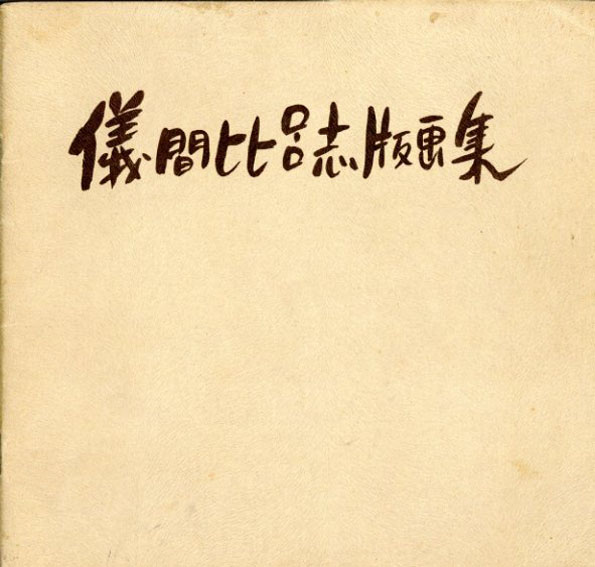 儀間比呂志版画集